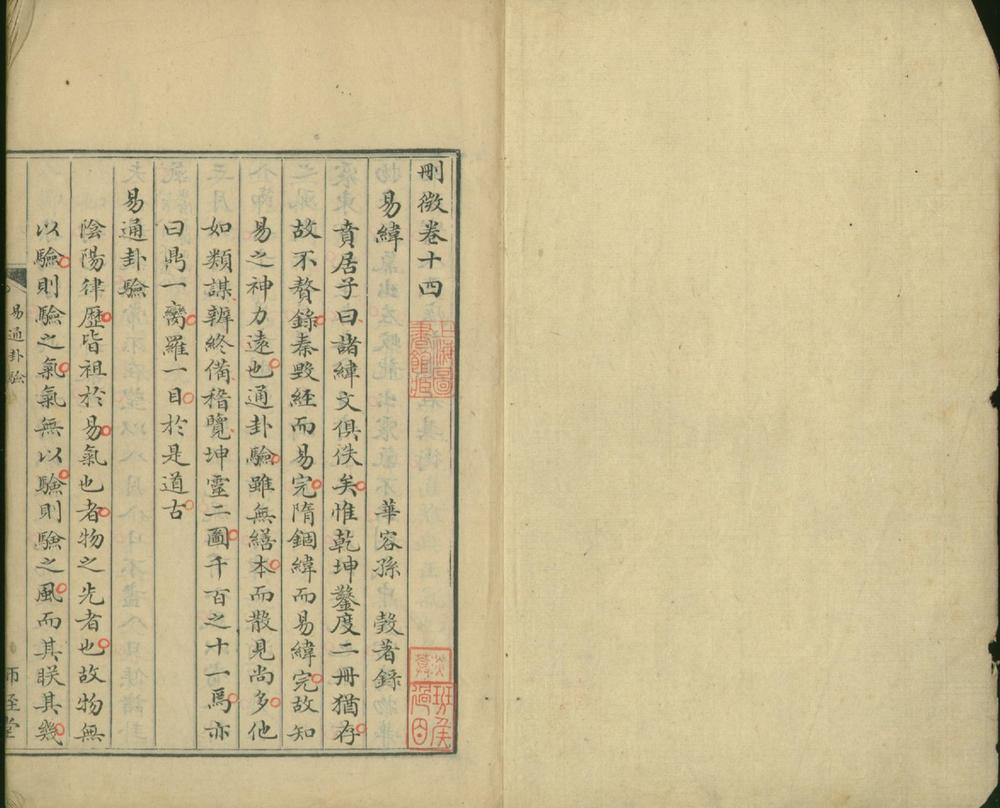 刪微卷十四
易緯
華容孫瑴著錄
賁居子曰諸緯文俱佚矣惟乾坤鑿度二冊猶存
故不贅錄秦毀經而易完隋錮緯而易緯完故知
易之神力遠也通卦驗雖無繕本而散見尚多他
如類謀辨終備稽覽坤靈二圖千百之十一焉亦
曰鼎一臠羅一目於是道古
易通卦驗
陰陽律歷皆祖於易氣也者物之先者也故物無
以驗則驗之氣氣無以驗則驗之風而其眹其幾
易通卦驗
上海圖
書館臧